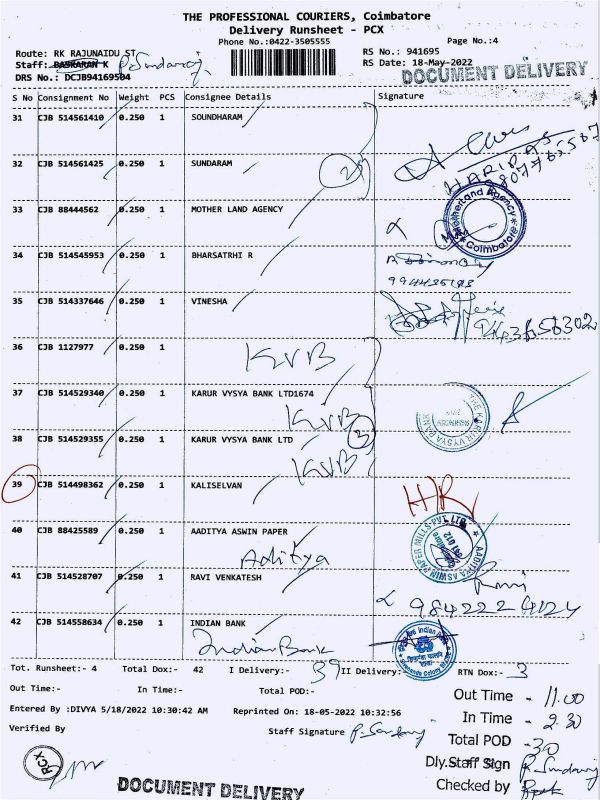 THE PROFESSIONAL COURIERS, Coimbatore
Delivery Runsheet - PCX
Phone No.:0422-3505555
Page No.:4
Route: RK RAJUNAIDU ST
RS No.: 941695
Staff: BASKARAN K P. Sundaraj
RS Date: 18-May-2022
DRS No.: DCJB94169504
DOCUMENT DELIVERY
S No Consignment No Weight PCS Consignee Details Signature
31 CJB 514561410 0.250 1 SOUNDHARAM
32 CJB 514561425 0.250 1 SUNDARAM
2
HARIDAS
33 CJB 88444562 0.250 1 MOTHER LAND AGENCY
Motherland Agency
Coimbatore
34 CJB 514545953 0.250 1 BHARSATRHI R
35 CJB 514337646 0.250 1 VINESHA
36 CJB 1127977 0.250 1
KVB
37 CJB 514529340 0.250 1 KARUR VYSYA BANK LTD1674
KVB
THE KARUR VYSYA BANK
38 CJB 514529355 0.250 1 KARUR VYSYA BANK LTD
3
KVB
39 CJB 514498362 0.250 1 KALISELVAN
HR
40 CJB 88425589 0.250 1 AADITYA ASWIN PAPER
Aditya
AADITYA ASWIN PAPER MILLS PVT. LTD.
41 CJB 514528707 0.250 1 RAVI VENKATESH
Ravi
42 CJB 514558634 0.250 1 INDIAN BANK
Indian Bank
Tot. Runsheet:- 4 Total Dox:- 42 I Delivery:- 39 II Delivery:- RTN Dox:- 3
Out Time:- In Time:- Total POD:-
Out Time - 11.00
Entered By :DIVYA 5/18/2022 10:30:42 AM Reprinted On: 18-05-2022 10:32:56
In Time - 2.30
Verified By
Staff Signature P. Sundaraj
Total POD - 30
Dly.Staff Sign P. Sundaraj
PCX
Checked by
DOCUMENT DELIVERY